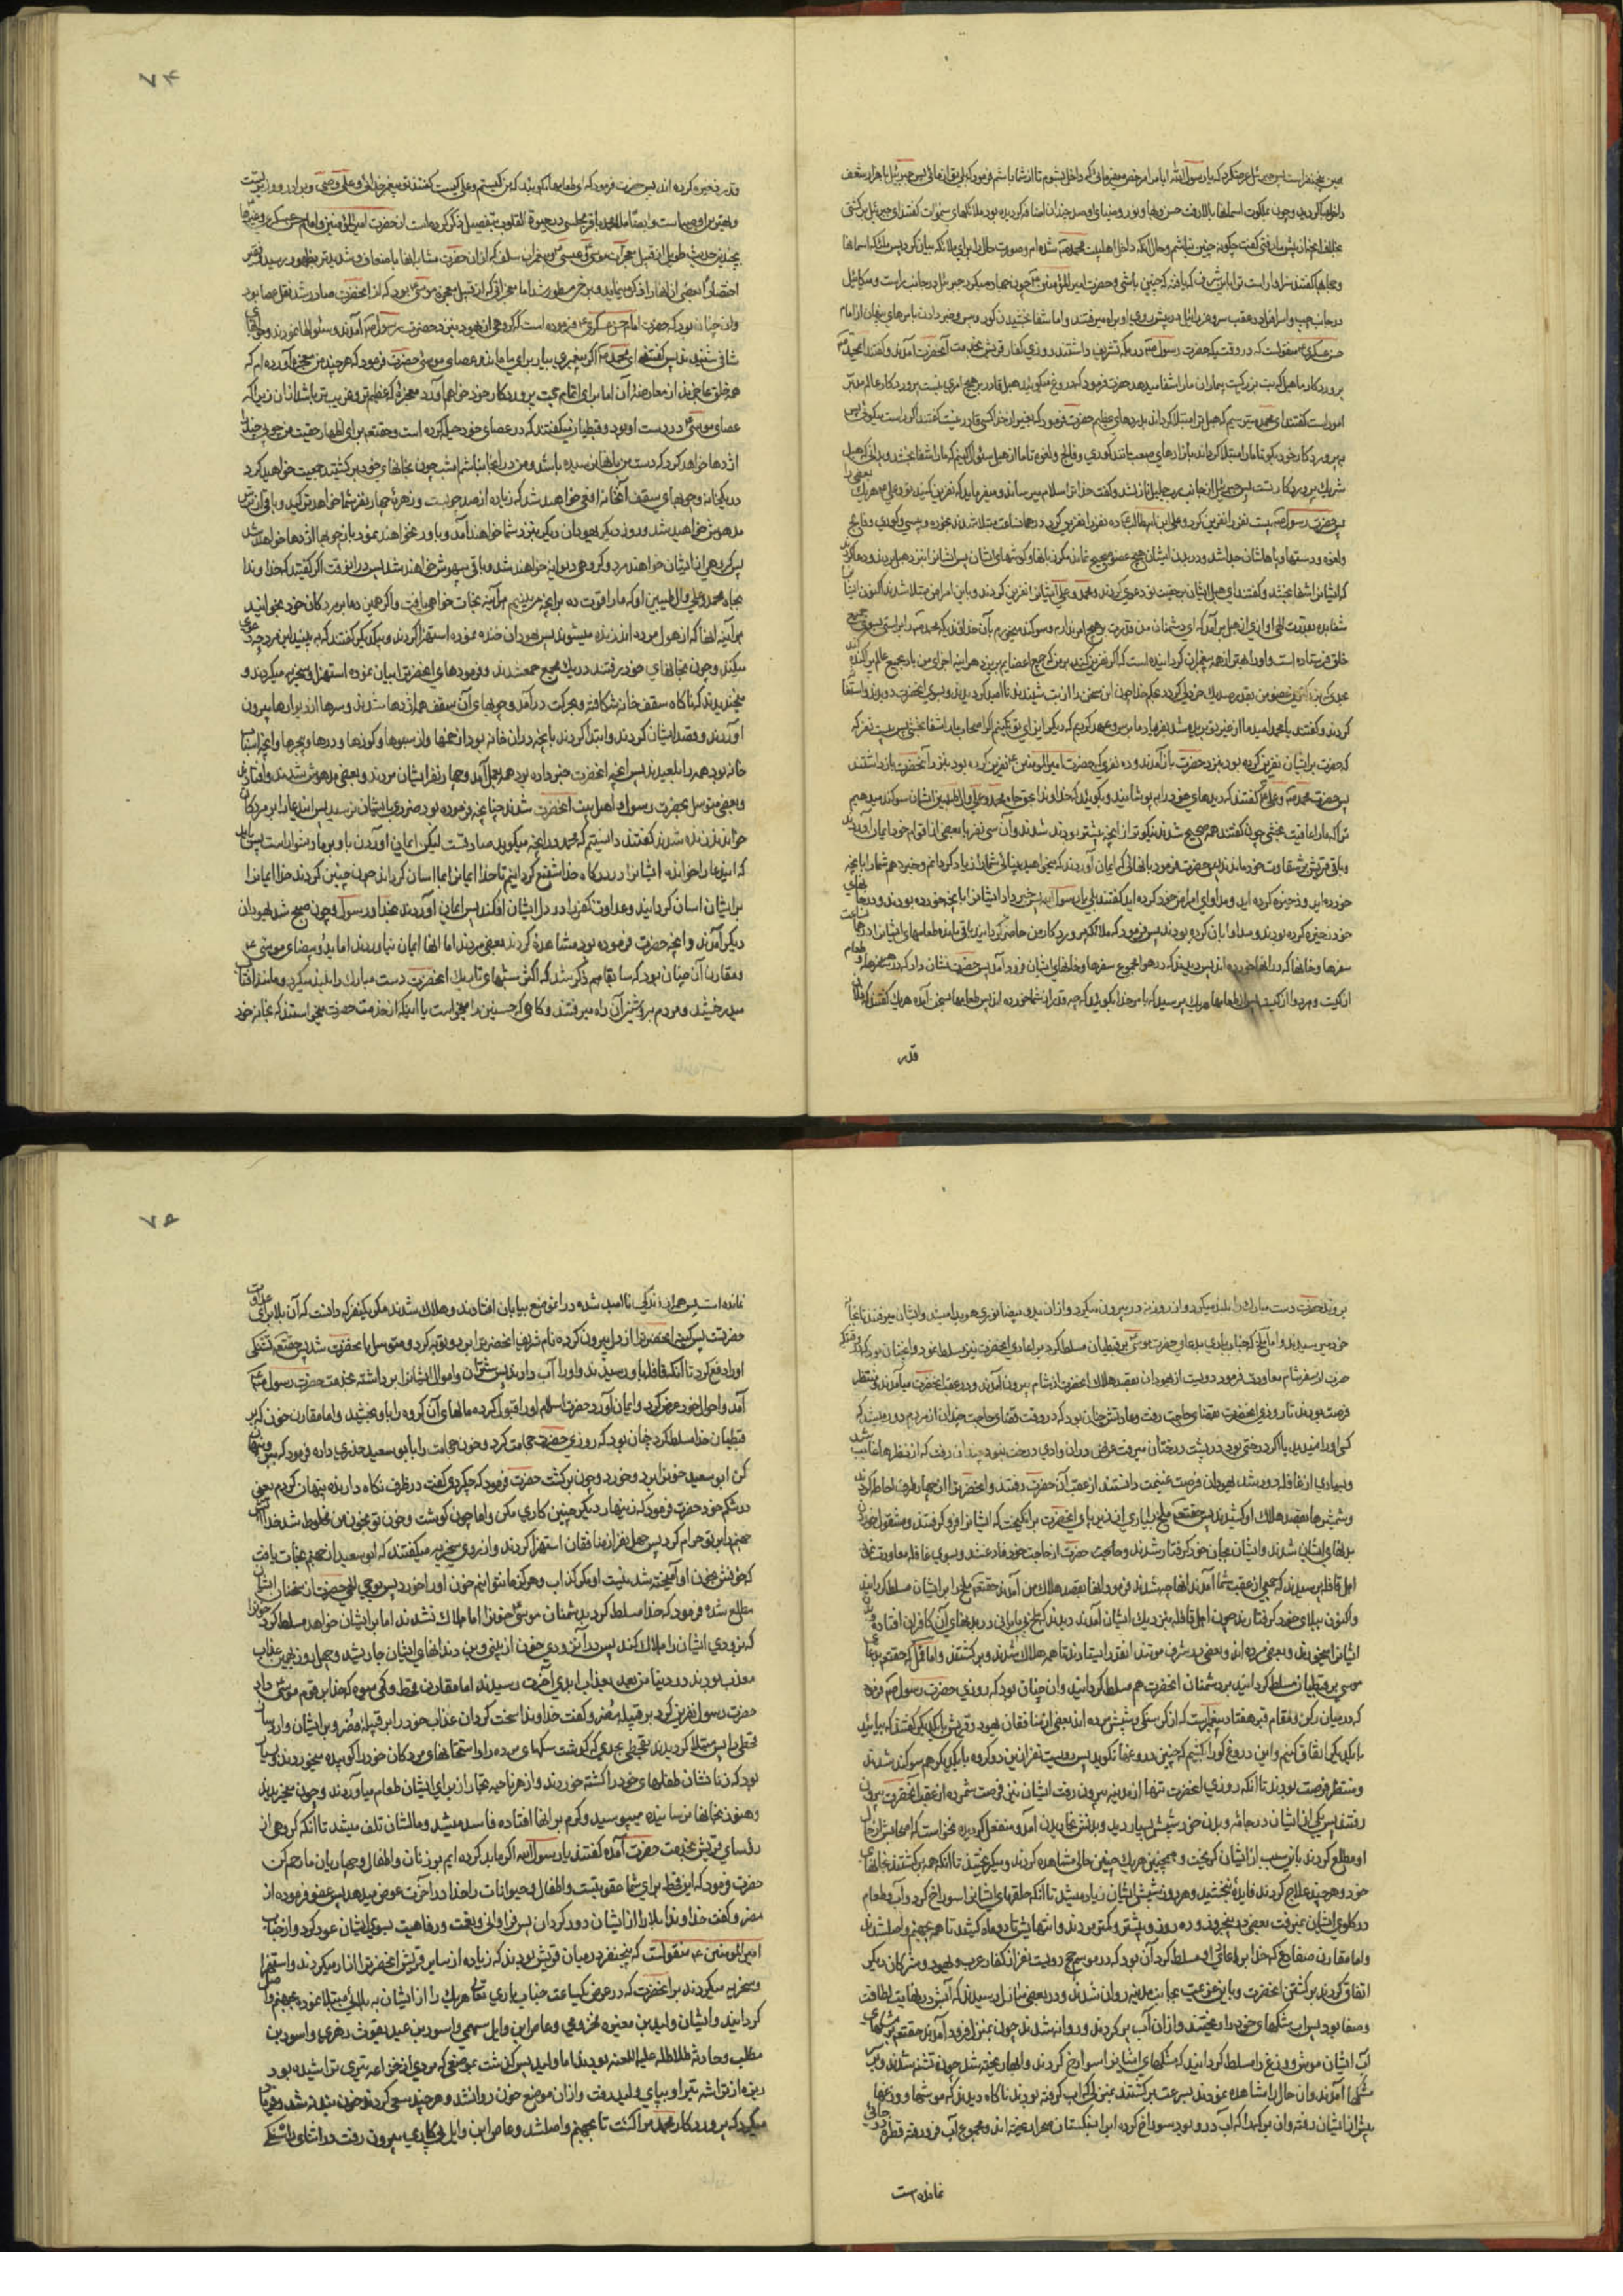 همین پنج نفر است پس جبرئیل عرض کرد که یا رسول الله ایا مرا مرخص میفرمائی که داخل بشوم تا از شما باشم فرمود که بلی
داخل عبا گردید و چون بملکوت اسمانها بالا رفت حسن و بها و نور و ضیای او صد چندان اضافه گردیده بود ملائکهای سموات گفتند ای جبرئیل برگشتی
بخلاف انچه از پیش ما رفتی گفت چگونه چنین نباشم و حال انکه داخل اهلبیت محمد ص شده ام
و حجابها گفتند سزاوار است ترا این شرف که یافته که چنین باشی و حضرت امیرالمؤمنین ع چون جهاد میکرد جبرئیل در جانب راست و میکائیل
در جانب چپ و اسرافیل در عقب سر و عزرائیل در پیش روی او براه میرفتند و اما شفا بخشیدن کور و پیس و خبر دادن باسرهای پنهان از امام
حسن عسکری ع منقولست که در وقتیکه حضرت رسول ص در مکه تشریف داشتند روزی کفار قریش بخدمت آنحضرت آمدند و گفتند ای محمد ص
پروردگار ما هبل که بت بزرگست بیماران ما را شفا میدهد حضرت فرمود که دروغ میگوئید هبل قادر بر هیچ امری نیست پروردگار عالم مدبر
امور است گفتند ای محمد میترسیم که هبل ترا مبتلا گرداند بدردهای عظیم حضرت فرمود که بغیر از خدا کسی قادر نیست گفتند اگر راست میگوئی پس
بپروردگار خود بگو تا ما را مبتلا گرداند بازارهای صعب مانند کوری و فالج و لقوه تا ما از هبل سئوال کنیم که ما را شفا بخشد و بدانی که هبل
شریک پروردگار تست پس جبرئیل از جانب رب جلیل نازل شد و گفت خدا ترا سلام میرساند و میفرماید که نفرین کنید تو و علی هر یک بعضی را
پس حضرت رسول ص بیست نفر را نفرین کرد و علی ابن ابیطالب ع ده نفر را نفرین کرد در همان ساعت مبتلا شدند بخوره و پیسی و کوری و فالج
و لقوه و دستها و پاهاشان جدا شد و در بدن ایشان هیچ عضو صحیح نماند مگر زبانها و گوشهای ایشان پس ایشان را نزد هبل بردند و دعا کردند
که ایشان را شفا بخشد و گفتند ای هبل ایشان بر حقیت تو دعوی کردند و محمد و علی ایشان را نفرین کردند و باین امراض مبتلا شدند اکنون ایشان را
شفا بده بقدرت الهی اوازی از هبل برآمد که ای دشمنان من قدرت بر هیچ امر ندارم و سوگند میخورم بآن خدائی که محمد ص را براستی بسوی جمیع
خلق فرستاده است و او را بهتر از همه پیغمبران گردانیده است که اگر نفرین کند بر من که جمیع اعضایم بریزد هر اینه اجزای من باد بجمیع عالم پراکنده
کردند و گفتند یا محمد امید ما از غیر تو بریده شد بفریاد ما برس و عهد کردیم که دیگر ایذای تو نکنیم اگر اصحاب ما را شفا بخشی پس بیست نفر که
که حضرت بر ایشان نفرین کرده بود بنزد حضرت باز آمدند و ده نفری که حضرت امیرالمؤمنین ع نفرین کرده بود بنزد آنحضرت باز داشتند
پس حضرت محمد ص و علی ع گفتند که دیدهای خود را بپوشانید و بگوئید که خداوندا بحق جاه محمد و علی و آل طیبین ایشان سوگند میدهیم
ترا که ما را عافیت بخشی چون گفتند همه صحیح شدند نیکوتر از انچه پیشتر بودند شدند و آن سی نفر با بعضی از اقوام خود ایمان آوردند
و باقی قریش بر شقاوت خود ماندند پس حضرت فرمود بانهائی که ایمان آوردند که میخواهید بینائی شما را زیاد گردانم و خبر دهم شما را بانچه
خورده اید و ذخیره کرده اید و مداوای امراض خود کرده اید گفتند بلی یا رسول الله پس خبر داد ایشان را بانچه خورده بودند و در خانهای
خود ذخیره کرده بودند و مداوا بان کرده بودند پس فرمود که ملائکه پروردگار من حاضر گردانید باقیمانده طعامهای ایشان را در همان ساعت
سفرها و خانهاکه در انها خورده اند پس دیدند که در هوا مجموع سفرها و خانهای ایشان فرود آمد پس حضرت نشان داد که در سفرها و طعام
از کیست و دوا از کیست پس از طعامها هر یک پرسید که بامر خدا بگوئید که چه قدر از شما خورده اند پس طعامها بسخن آمده هر یک گفتند که فلان
قدر
۷۴
قدر ذخیره کرده اند پس حضرت فرمود که ای طعامها بگوئید که من کیستم و علی کیست گفتند تو پیغمبر خدائی و علی وصی و برادر و وزیر تست
و بهترین اوصیاست و ایضا ملا محمد باقر مجلسی در حیوة القلوب بتفصیل ذکر کرده است از حضرت امیرالمؤمنین و امام حسن عسکری و غیرها
بچندین حدیث طویل از قبیل معجزات موسی و عیسی و پیغمبران سلف که از آن حضرت مشابه انها باضعاف و شدیدتر بظهور رسید
اختصارا بعضی از انها را ذکر مینماید و برخی مسطور شد اما معجزاتی که از قبیل معجزه موسی ع بود که از انحضرت صادر شد نقل عصا بود
و آن چنان بود که حضرت امام حسن عسکری ع فرموده است که گروهی از یهود بنزد حضرت رسول ص آمدند و سئوالها نمودند و جوابهای
شافی شنیدند پس گفتند ای محمد ص اگر پیغمبری بیار برای ما مانند عصای موسی حضرت فرمود که هر چند من معجزه آورده ام که
همه خلق عاجزند از معارضه آن اما برای اتمام حجت پروردگار خود خواهم آورد معجزه که عظیم تر و غریب تر باشد از آن زیرا که
عصای موسی ع در دست او بود و قبطیان میگفتند که در عصای خود حیله کرده است و حقتعالی برای اظهار حقیت من چوبی چند را
اژدها خواهد کرد که دست من بانها نرسیده باشد و من در انجا نباشم امشب چون بخانهای خود برگشتید جمعیت خواهید کرد
در یک خانه و چوبهای سقف آنخانه افعی خواهند شد که زیاده از صد چوبست و زهره چهار نفر شما خواهد ترکید و باقی از ترس
مدهوش خواهید شد و روز دیگر یهودان دیگر بنزد شما خواهند آمد و باور نخواهند نمود باز چوبها اژدها خواهند شد
پس گروهی از ایشان خواهند مرد و گروهی دیوانه خواهند شد و باقی بیهوش خواهند شد پس در انوقت اگر گفتید که خداوندا
بجاه محمد و علی و آل طیبین او که ما را قوت ده بر انچه مریبینیم هر آینه نجات خواهید یافت و اگر همین دعا بر مردگان خود بخوانید
میکند و چون بخانهای خود برفتند در یک مجمع جمع شدند و فرمودهای انحضرت را بیان نموده استهزا و سخریه میکردند و
میخندیدند که ناگاه سقف خانه شکافته و بحرکت درآمد و چوبهای آن سقف همه اژدها شدند و سرها از دیوارها بیرون
آوردند و قصد ایشان کردند و ابتدا کردند بانچه در آن خانه بود از خمها و از سبوها و کوزها و درها و پنجرها و انچه اسباب
خانه بود همه را بلعیدند پس انچه انحضرت خبر داده بود همه بعمل آمد و چهار نفر ایشان مردند و بعضی مدهوش شدند و افتادند
و بعضی متوسل بحضرت رسول و اهل بیت انحضرت شدند چنانچه فرموده بود ضرری بایشان نرسید پس این دعا را بر مردگان
خواندند زنده شدند گفتند دانستیم که محمد در انچه میگوید صادقست لیکن ایمان آوردن باو بر ما دشوار است پس باید
که این دعا را خوانده ایشان را در درگاه خدا شفیع گردانیم تا خدا ایمان را بما اسان گرداند چون چنین کردند خدا ایمان را
بر ایشان اسان گردانید و عداوت کفر را در دل ایشان افکند پس ایمان آوردند بخدا و رسول و چون صبح شد یهودان
دیگر آمدند و انچه حضرت فرموده بود مشاهده کردند بعضی مردند اما انها ایمان نیاوردند اما ید بیضای موسی ع
و مقارن آن چنان بود که سابقا هم ذکر شد که اکثر شبهای تاریک انحضرت دست مبارک را بلند میکرد و مانند افتاب
میدرخشید و مردم بروشنی آن راه میرفتند و گاهی که حسنین را میخواست یا اینکه از خدمت حضرت میخواستند که بخانه خود
بروند حضرت دست مبارک را بلند میکرد و از روزنه در بیرون میکرد و از آن ید بیضا نوری هویدا میشد و ایشان میرفتند تا بخانه
خود میرسیدند و اما ملخ که جناب باری بدعای حضرت موسی بر قبطیان مسلط کرد بر اعادی انحضرت نیز مسلط نمود و انچنان بود که
حضرت از سفر شام معاودت فرمود دویست از یهودان بقصد هلاک انحضرت از شام بیرون آمدند و در عقب انحضرت میآمدند و منتظر
فرصت بودند تا روزی انحضرت بقضای حاجت رفت و عادتش چنان بود که در وقت قضای حاجت چندان از مردم دور میشد که
کسی او را نمیدید یا اگر درختی بود در پشت درختان میرفت غرض در ان وادی درخت نبود چندان رفت که از نظرها غایب شد
و بسیاری از قافله دور شد یهودان فرصت غنیمت دانستند از عقب آن حضرت رفتند و انحضرت را از چهار طرف احاطه کردند
و شمشیرها بقصد هلاک او کشیدند پس حقتعالی ملخ بسیاری از زیر پای انحضرت برانگیخت که ایشان را فرو گرفتند و مشغول خوردن
بدنهای ایشان شدند و ایشان بجان خود گرفتار شدند و حاجت حضرت از حاجت خود فارغ شد و بسوی قافله معاودت نمود
اهل قافله پرسیدند که جمعی از عقب شما آمدند انها چه شدند فرمود انها بقصد هلاک من آمدند حقتعالی ملخ را بر ایشان مسلط گردانید
و اکنون ببلای خود گرفتارند چون اهل قافله بنزدیک ایشان آمدند دیدند که ملخ بسیاری در بدنهای آن کافران افتاده
ایشان را میخورند و بعضی مرده اند و بعضی مشرف بموتند انقدر ایستادند تا همه هلاک شدند و برگشتند و اما قمل که حقتعالی بدعای
موسی بر قبطیان مسلط گردانید بر دشمنان انحضرت هم مسلط گردانید و آن چنان بود که روزی حضرت رسول ص فرمود
که در میان رکن و مقام قبر هفتاد پیغمبر است که از گرسنگی و شپش مرده اند بعضی از منافقان یهود و قریش با یکدیگر گفتند که بیائید
با یکدیگر اتفاق کنیم و این دروغگو را بکشیم که چنین دروغها نگوید پس دویست نفر از این دو گروه با یکدیگر هم سوگند شدند
و منتظر فرصت بودند تا آنکه روزی انحضرت تنها از مدینه بیرون رفت ایشان نیز فرصت شمرده از عقب آنحضرت بیرون
رفتند پس یکی از ایشان در جامه و بدن خود شپش بسیار دید و بدنش بخاریدن آمد و منفعل گردیده نخواست که اصحابش از حال
او مطلع گردند باین سبب از ایشان گریخت و همچنین هر یک چنین حالی مشاهده کردند و میگریختند تا آنکه همه برگشتند بخانهای
خود و هر چند علاج کردند فایده نبخشید و هر روز شپش ایشان زیاد میشد تا آنکه حلقهای ایشان را سوراخ کرد و آب و طعام
در گلوی ایشان نمیرفت بعضی در پنج روز و ده روز و بیشتر و کمتر مردند و انتهایش تا دو ماه کشید تا همه بجهنم واصل شدند
و اما مقارن ضفادع که خدا بر اعادی او مسلط کرد آن بود که در موسم حج دویست نفر از کفار عرب و یهود و مشرکان دیگر
اتفاق کردند بر کشتن انحضرت و باین عزیمت بجانب مدینه روان شدند و در بعضی منازل رسیدند که آبش در نهایت لطافت
و صفا بود پس آب مشکهای خود را ریختند و از آن آب پر کردند و روانه شدند چون بمنزل فرود آمدند حقتعالی بر مشکهای
آب ایشان موش و وزغ را مسلط گردانید که مشکهای ایشان را سوراخ کردند و آبها ریخته شد چون تشنه شدند و بر سر
مشکها آمدند و آن حال را مشاهده نمودند بسرعت برگشتند بمنزلی که آب گرفته بودند ناگاه دیدند که موشها و وزغها
پیش از ایشان رفته و آن برکها را که آب در او بود سوراخ کرده اند و مجموع آب فرو رفته قطره در جائی
نمانده است
۷۵
نمانده است پس همه از زندگی ناامید شده در انموضع بیابان افتادند و هلاک شدند مگر یکنفر که دانست که آن بلا برای عداوت
حضرتست پس کینه انحضرت را از دل بیرون کرده نام شریف انحضرت را برد و توبه کرد و متوسل بانحضرت شد پس حقتعالی تشنگی
او را دفع کرد تا آنکه قافله باو رسیدند و او را آب دادند پس شتران و اموال ایشان را برداشته بخدمت حضرت رسول ص
آمد و احوال خود عرض کرد و ایمان آورد و حضرت اسلام او را قبول کرده مالهای آن گروه را باو بخشید و اما مقارن خون که بر
قبطیان خدا مسلط کرد چنان بود که روزی حضرت حجامت کرد و خون حجامت را بابو سعید خدری داده فرمود که ببر و پنهان
کن ابو سعید خون را برد و خورد و چون برگشت حضرت فرمود که چه کردی گفت در ظرف نگاه دارنده پنهان کردم یعنی
در شکم خود حضرت فرمود که زینهار دیگر چنین کاری مکن و اما چون گوشت و خون تو بخون من مخلوط شد خدا آتش
جهنم را بر تو حرام کرد پس چهل نفر از منافقان استهزا کردند و از روی سخریه میگفتند که ابو سعید از جهنم نجات یافت
که خونش بخون او آمیخته شد نیست او مگر کذاب و هرگز ما نتوانیم خون او را خورد پس بوحی الهی حضرت از سخنان ایشان
مطلع شده فرمود که خدا مسلط کرد بر دشمنان موسی خون را اما هلاک نشدند اما بر ایشان خواهد مسلط کرد خون را
که بزودی ایشان را هلاک کند پس در انزودی خون از بینی و بن دندانهای ایشان جاری شد و چهل روز بهمین عذاب
معذب بودند در دنیا من بعد بعذاب ابدی آخرت رسیدند اما مقارن قحط و کمی میوه که خدا بر قوم موسی داد
حضرت رسول نفرین کرد بر قبیله مضر و گفت خداوندا سخت گردان عذاب خود را بر قبیله مضر و بر ایشان وارد ساز
قحطی را پس مبتلا گردیدند بقحطی بحدی که گوشت سگهای مرده را و استخوانهای مردگان خود را کوبیده میخوردند و
بود که زنانشان طفلهای خود را کشته خوردند و از هر ناحیه تجار از برای ایشان طعام میآوردند و چون میخریدند
و هنوز بخانها نرسانیده میپوسید و کرم بر انها افتاده فاسد میشد و مالشان تلف میشد تا آنکه گروهی از
رؤسای قریش بخدمت حضرت آمده گفتند یا رسول الله اگر ما بد کرده ایم بر زنان و اطفال و چهارپایان ما رحم کن
حضرت فرمود که این قحط برای شما عقوبتست و اطفال و حیوانات را خدا در آخرت عوض میدهد پس عفو فرموده از
مضر و گفت خداوندا بلا را از ایشان دور گردان پس فراوانی و نعمت و رفاهیت بسوی ایشان عود کرد و از جناب
امیرالمؤمنین ع منقولست که پنج نفر در میان قریش بودند که زیاده از سایر قریش انحضرت را ازار میکردند و استهزا
و سخریه میکردند بر انحضرت که در عرض یکساعت جناب باری تعالی هر یک را از ایشان به بلائی مبتلا نموده بجهنم واصل
گردانید و ایشان ولید بن مغیره مخزومی و عاص ابن وایل سهمی و اسود بن عبد یغوث زهری و اسود بن
مطلب و حارث طلاطله علیه اللعنه بودند اما ولید پس گذشت بموضعی که مردی از خزاعه تیری تراشیده بود
ریزه از تراشه تیر او بپای ولید رفت و از آن موضع خون روان شد و هر چند سعی کردند خون بند نشد و فریاد
میکرد که پروردگار محمد مرا کشت تا بجهنم واصل شد و عاص ابن وایل پی کاری بیرون رفت در اثنای راه سنگی